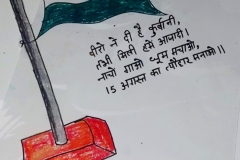 वीरो ने दी है कुर्बानी,
तभी मिली हमें आजादी।
नाचो गाओ धूम मचाओ,
15 अगस्त का त्यौहार मनाओ।।